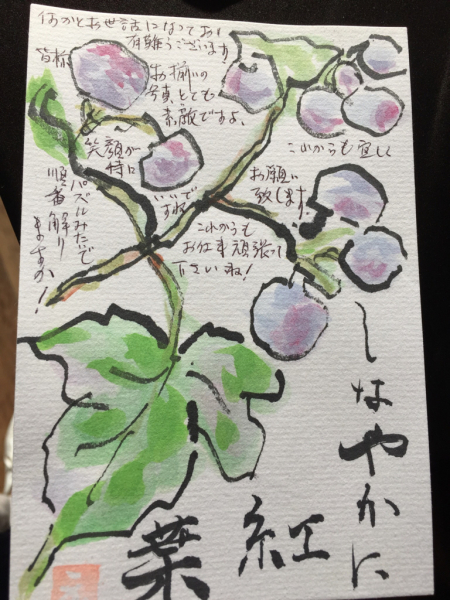 何かとお世話になっており
有難うございます。
皆様
お揃いの
写真とても
素敵ですよ。
笑顔が
特に
いいで
すね
これからも宜しく
お願い
致します。
これからも
お仕事頑張って
下さいね!
パズルみたいで
順番解り
ますか!
しなやかに
紅
葉